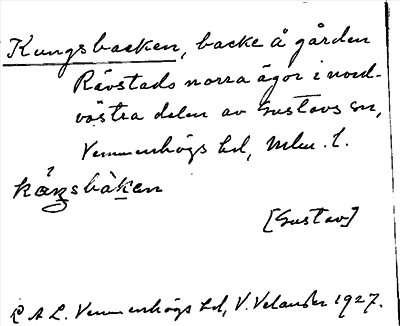 Kungsbacken, backe å gården
Rävstads norra ägor i nord-
västra delen av Gustavs sn,
Vemmenhögs hd, Mlm. l.
kåŋsbàken
[Gustav]
L A L. Vemmenhögs hd, V. Velander 1927.